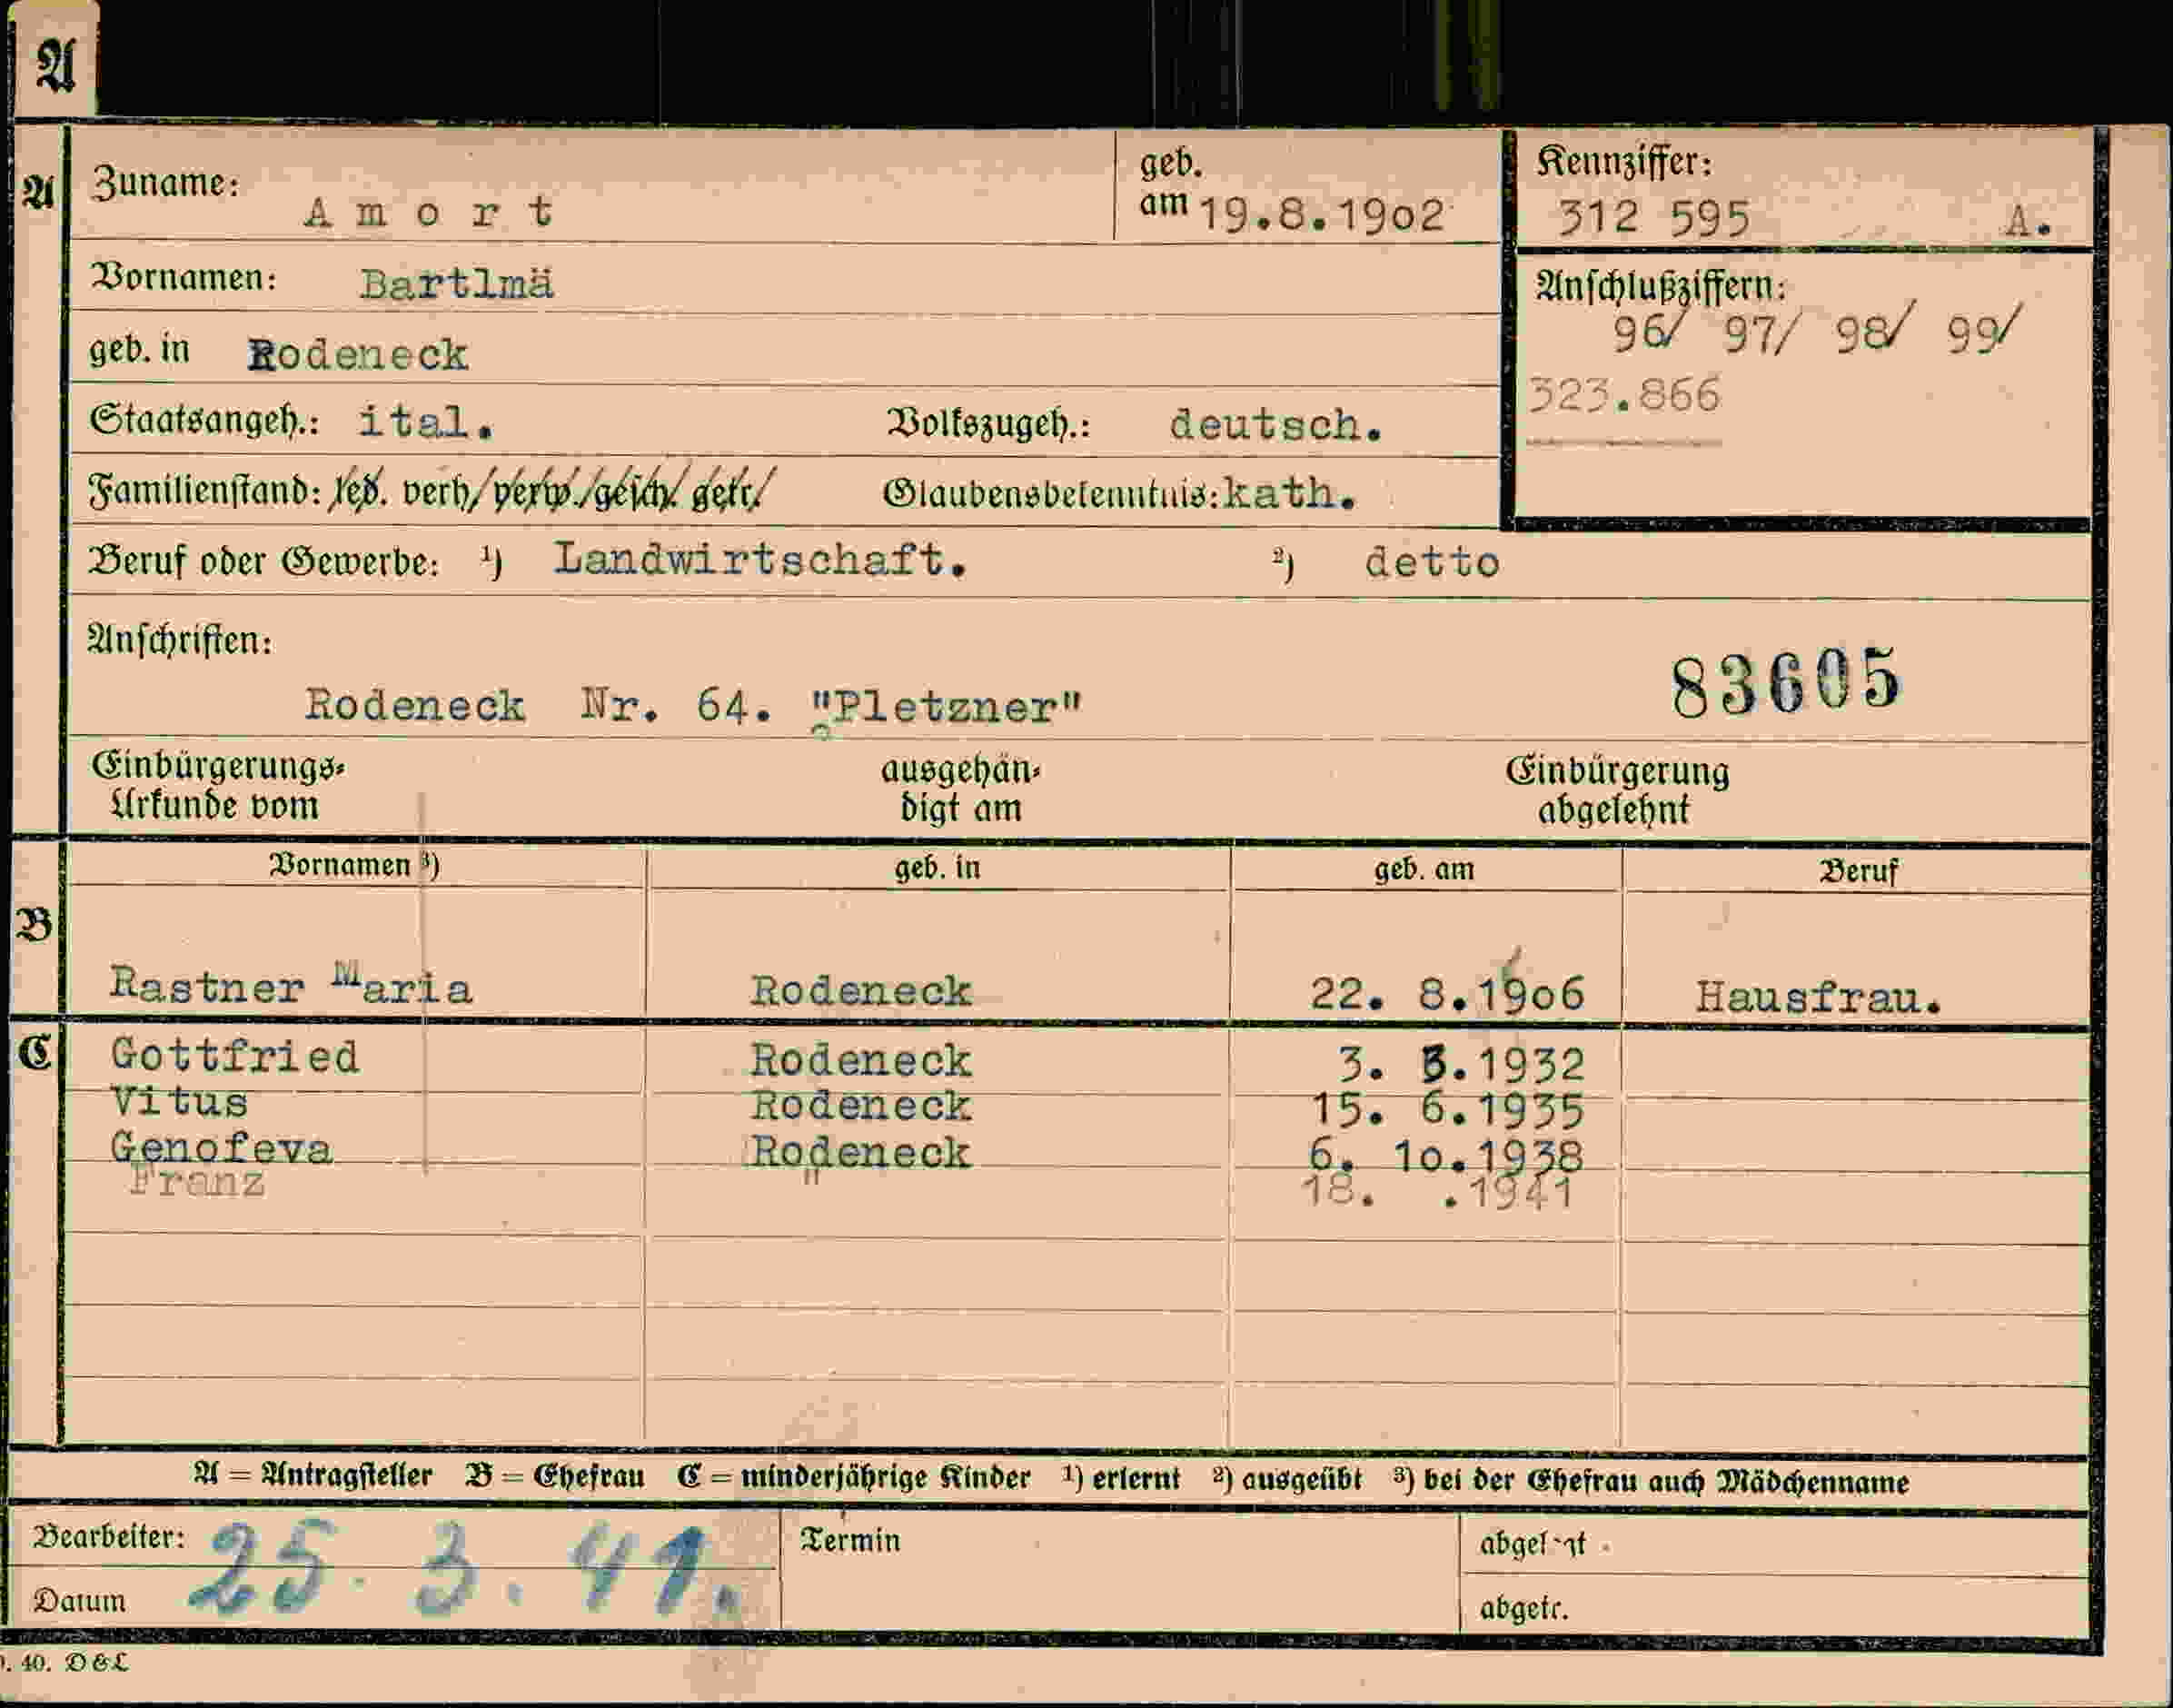 A
A
Zuname: Amort
geb. am 19.8.1902
Kennziffer:
312 595 A.
Vornamen: Bartlmä
Anschlußziffern:
96/ 97/ 98/ 99/
323.866
geb. in Rodeneck
Staatsangeh.: ital. Volkszugeh.: deutsch.
Familienstand: led. verh/verw./gesch/ getr/ Glaubensbekenntnis: kath.
Beruf oder Gewerbe: ¹) Landwirtschaft. ²) detto
Anschriften:
83605
Rodeneck Nr. 64. "Pletzner"
Einbürgerungs- ausgehän- Einbürgerung
Urkunde vom digt am abgelehnt
Vornamen ³) geb. in geb. am Beruf
B
Rastner Maria Rodeneck 22. 8.1906 Hausfrau.
C Gottfried Rodeneck 3. .1932
Vitus Rodeneck 15. 6.1935
Genofeva Rodeneck 6. 10.1938
Franz " 18. .1941
A = Antragsteller B = Ehefrau C = minderjährige Kinder ¹) erlernt ²) ausgeübt ³) bei der Ehefrau auch Mädchenname
Bearbeiter: Termin
25.3.41.
Datum abgetr.
. 40. D & L